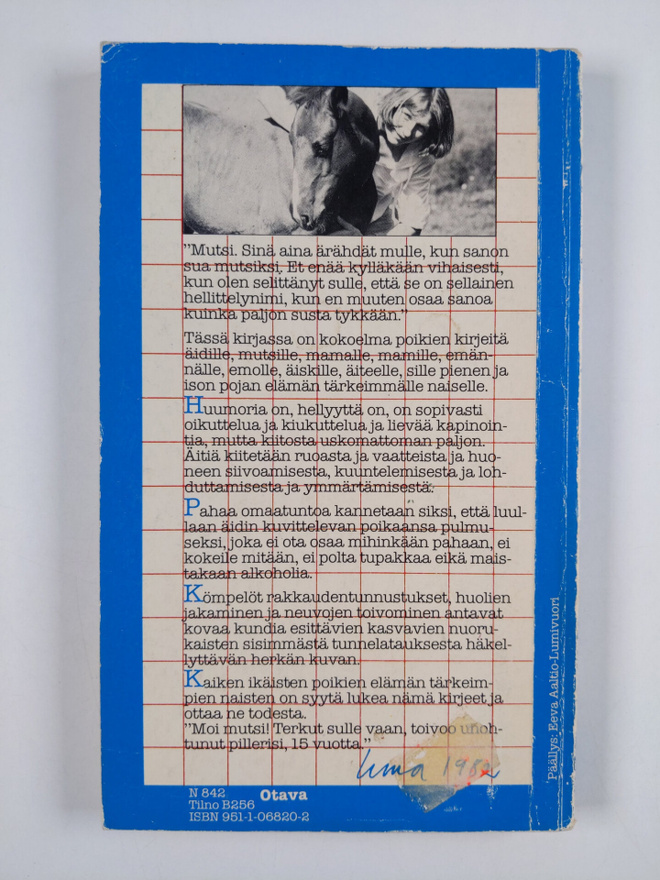 ”Mutsi. Sinä aina ärähdät mulle, kun sanon
sua mutsiksi. Et enää kylläkään vihaisesti,
kun olen selittänyt sulle, että se on sellainen
hellittelynimi, kun en muuten osaa sanoa
kuinka paljon susta tykkään.”
Tässä kirjassa on kokoelma poikien kirjeitä
äidille, mutsille, mamalle, mamille, emän-
nälle, emolle, äiskille, äiteelle, sille pienen ja
ison pojan elämän tärkeimmälle naiselle.
Huumoria on, hellyyttä on, on sopivasti
oikuttelua ja kiukuttelua ja lievää kapinoin-
tia, mutta kiitosta uskomattoman paljon.
Äitiä kiitetään ruoasta ja vaatteista ja huo-
neen siivoamisesta, kuuntelemisesta ja loh-
duttamisesta ja ymmärtämisestä.
Pahaa omaatuntoa kannetaan siksi, että luul-
laan äidin kuvittelevan poikaansa pulmu-
seksi, joka ei ota osaa mihinkään pahaan, ei
kokeile mitään, ei polta tupakkaa eikä mais-
takaan alkoholia.
Kömpelöt rakkaudentunnustukset, huolien
jakaminen ja neuvojen toivominen antavat
kovaa kundia esittävien kasvavien nuoru-
kaisten sisimmästä tunnelatauksesta häkel-
lyttävän herkän kuvan.
Kaiken ikäisten poikien elämän tärkeim-
pien naisten on syytä lukea nämä kirjeet ja
ottaa ne todesta.
”Moi mutsi! Terkut sulle vaan, toivoo unoh-
tunut pillerisi, 15 vuotta.”
1982
N 842 Otava
Tilno B256
ISBN 951-1-06820-2
Päällys: Eeva Aaltio-Lumivuori